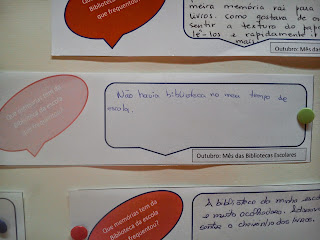 Que memórias tem da
Biblioteca da escola
que frequentou?
meira memória vai para
livros. Como gostava de os
sentir a textura do pap
lê-los e rapidamente ir
mais
Outubro: Mês das
Que memórias tem da
Biblioteca da escola
que frequentou?
Não havia biblioteca no meu tempo de
escola.
Outubro: Mês das Bibliotecas Escolares
Que memórias tem da
Biblioteca da escola
que frequentou?
A biblioteca da minha esco
e muito acolhedora. Adorava
sentir o cheirinho dos livros.